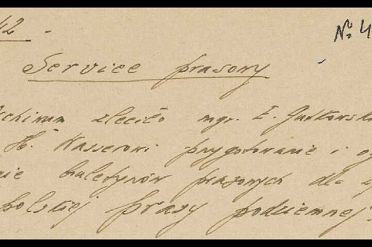 42 -
No 4
Service prasowy
zleciło mgr. E. Gutkowski
H. Wasserowi przygotowanie i o
nie biuletynów prasowych dla
polskiej prasy podziemnej.